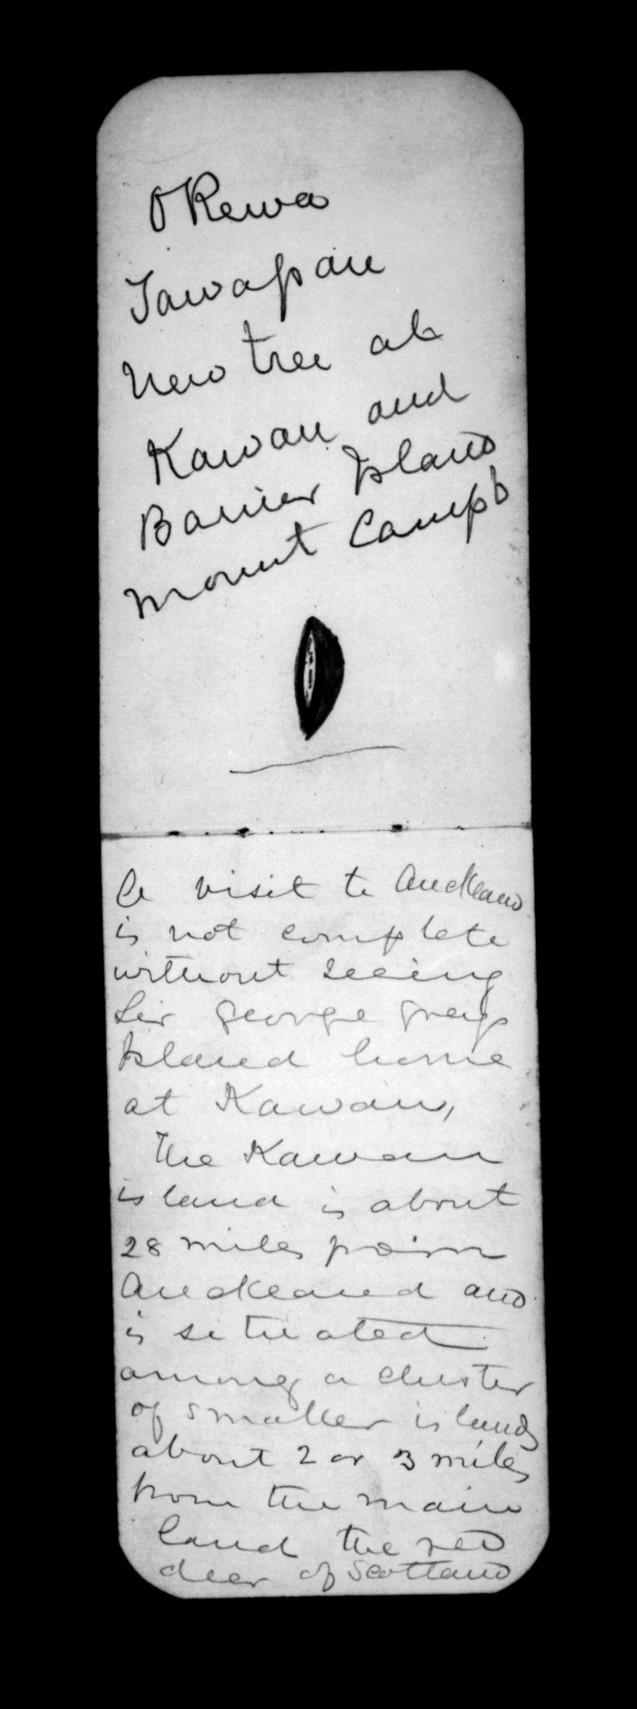 O Rewa
Tawapau
New tree at
Kawau and
Barrier Island
Mount Campb
A visit to Auckland
is not complete
without seeing
Sir George Greys
Island home
at Kawau,
The Kawau
island is about
28 miles from
Auckland and
is situated
among a cluster
of smaller islands
about 2 or 3 miles
from the main
land the red
deer of Scotland